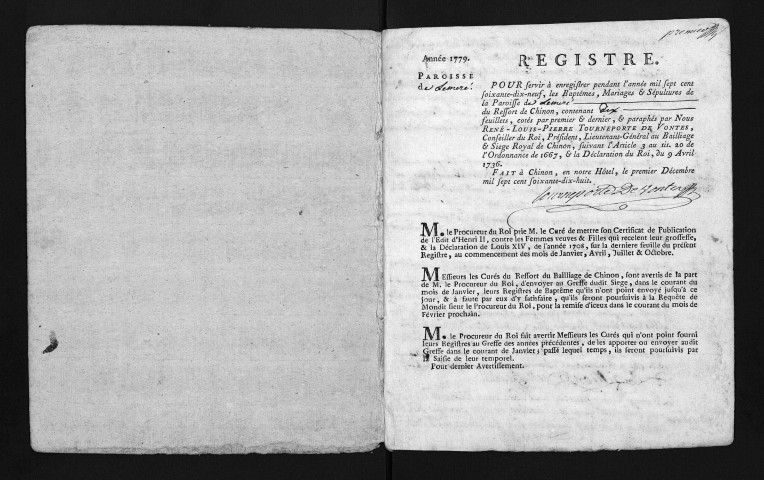 premier
Année 1779.
REGISTRE.
PAROISSE
de Lemeré
POUR servir à enregistrer pendant l'année mil sept cent
soixante-dix-neuf, les Baptêmes, Mariages & Sépultures de
la Paroisse de Lemeré
du Ressort de Chinon, contenant dix
feuillets, cotés par premier & dernier, & paraphés par Nous
RENÉ-LOUIS-PIERRE TOURNEPORTE DE VONTES,
Conseiller du Roi, Président, Lieutenant-Général au Bailliage
& Siege Royal de Chinon, suivant l'Article 3 au tit. 20 de
l'Ordonnance de 1667, & la Déclaration du Roi, du 9 Avril
1736.
FAIT à Chinon, en notre Hôtel, le premier Décembre
mil sept cent soixante-dix-huit.
Tourneporte De Vontes
M. le Procureur du Roi prie M. le Curé de mettre son Certificat de Publication
de l'Edit d'Henri II, contre les Femmes veuves & Filles qui recelent leur grossesse,
& la Déclaration de Louis XIV, de l'année 1708, sur la derniere feuille du présent
Registre, au commencement des mois de Janvier, Avril, Juillet & Octobre.
MEssieurs les Curés du Ressort du Bailliage de Chinon, sont avertis de la part
de M. le Procureur du Roi, d'envoyer au Greffe dudit Siege, dans le courant du
mois de Janvier, leurs Registres de Baptême qu'ils n'ont point envoyé jusqu'à ce
jour, & à faute par eux d'y satisfaire, qu'ils seront poursuivis à la Requête de
Mondit sieur le Procureur du Roi, pour la remise d'iceux dans le courant du mois de
Février prochain.
M. le Procureur du Roi fait avertir Messieurs les Curés qui n'ont point fourni
leurs Registres au Greffe des années précédentes, de les apporter ou envoyer audit
Greffe dans le courant de Janvier; passé lequel temps, ils seront poursuivis par
Saisie de leur temporel.
Pour dernier Avertissement.